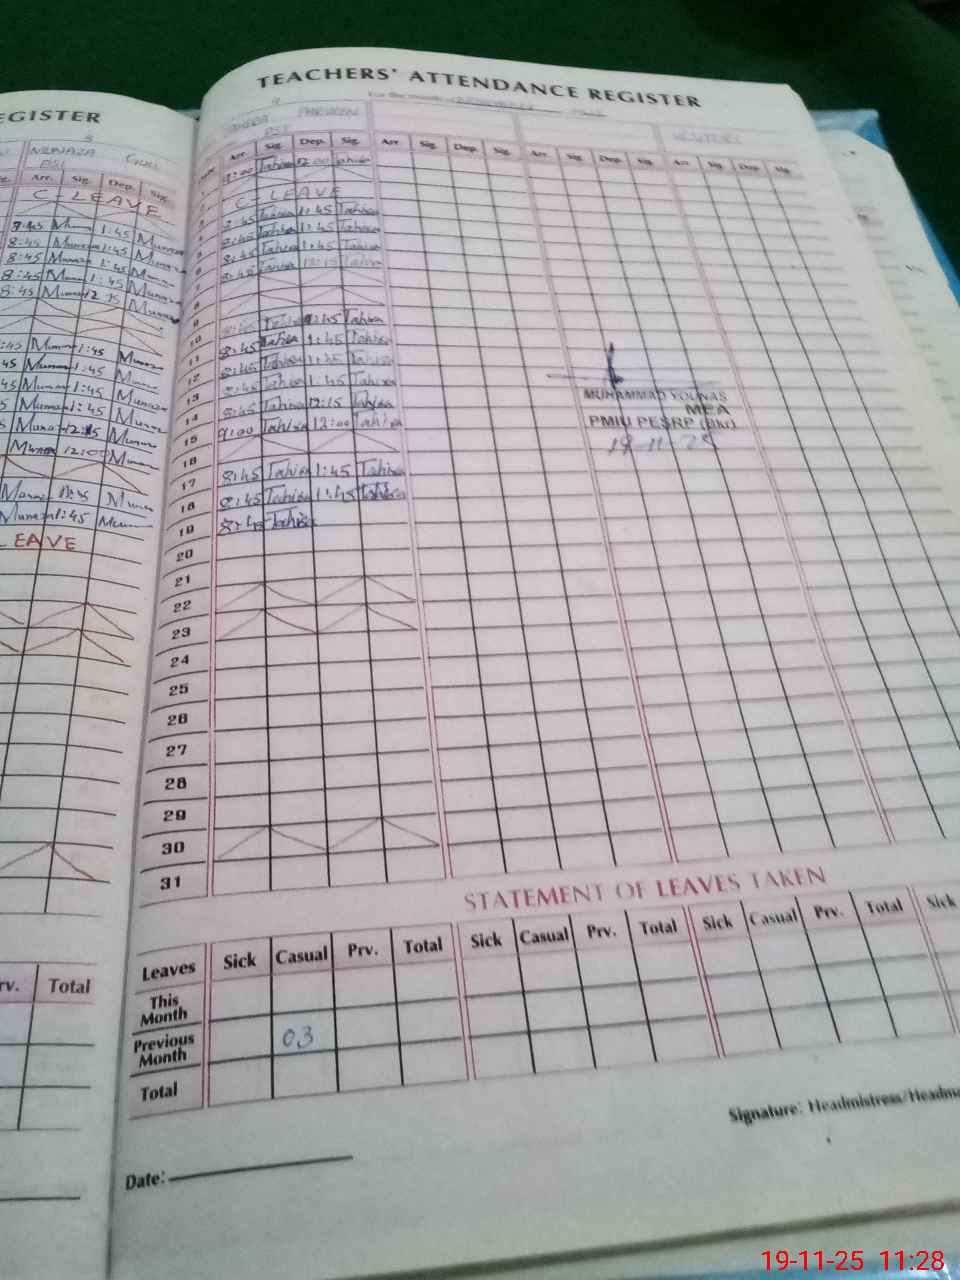 EGISTER
MUNAZA GULL
PST
Arr. Sig. Dep. Sig.
C-LEAVE
8:45 Mun 1:45 Munaza
8:45 Munaza 1:45 Munaza
8:45 Munaza 1:45 Munaza
8:45 Mun 1:45 Munaza
8:45 Mun 12:15 Munaza
:45 Munaza 1:45 Munaza
45 Munaza 1:45 Munaza
45 Munaza 1:45 Munaza
5 Munaza 1:45 Munaza
5 Munaza 12:15 Munaza
Munaza 12:00 Munaza
Munaza 1:45 Munaza
Munaza 1:45 Munaza
LEAVE
rv. Total
TEACHERS' ATTENDANCE REGISTER
For the month of
9
PARVEEN
PST
Arr. Sig. Dep. Sig. Arr. Sig. Dep. Sig. Arr. Sig. Dep. Sig. Arr. Sig. Dep. Sig.
9:00 Tahisa 12:00 Tahisa
C-LEAVE
8:45 Tahisa 1:45 Tahisa
8:45 Tahisa 1:45 Tahisa
8:45 Tahisa 1:45 Tahisa
8:45 Tahisa 12:15 Tahisa
8
9
10 8:45 Tahisa 1:45 Tahisa
11 8:45 Tahisa 1:45 Tahisa
12 8:45 Tahisa 1:45 Tahisa
13 8:45 Tahisa 1:45 Tahisa
14 8:45 Tahisa 12:15 Tahisa
15 9:00 Tahisa 12:00 Tahisa
16
17 8:45 Tahisa 1:45 Tahisa
18 8:45 Tahisa 1:45 Tahisa
19 8:45 Tahisa
20
21
22
23
24
25
26
27
28
29
30
31
MUHAMMAD YOUNAS
MEA
PMIU PESRP (Bkr)
19-11-25
STATEMENT OF LEAVES TAKEN
Leaves Sick Casual Prv. Total Sick Casual Prv. Total Sick Casual Prv. Total Sick
This Month
Previous Month 03
Total
Signature: Headmistress/Headm
Date:
19-11-25 11:28